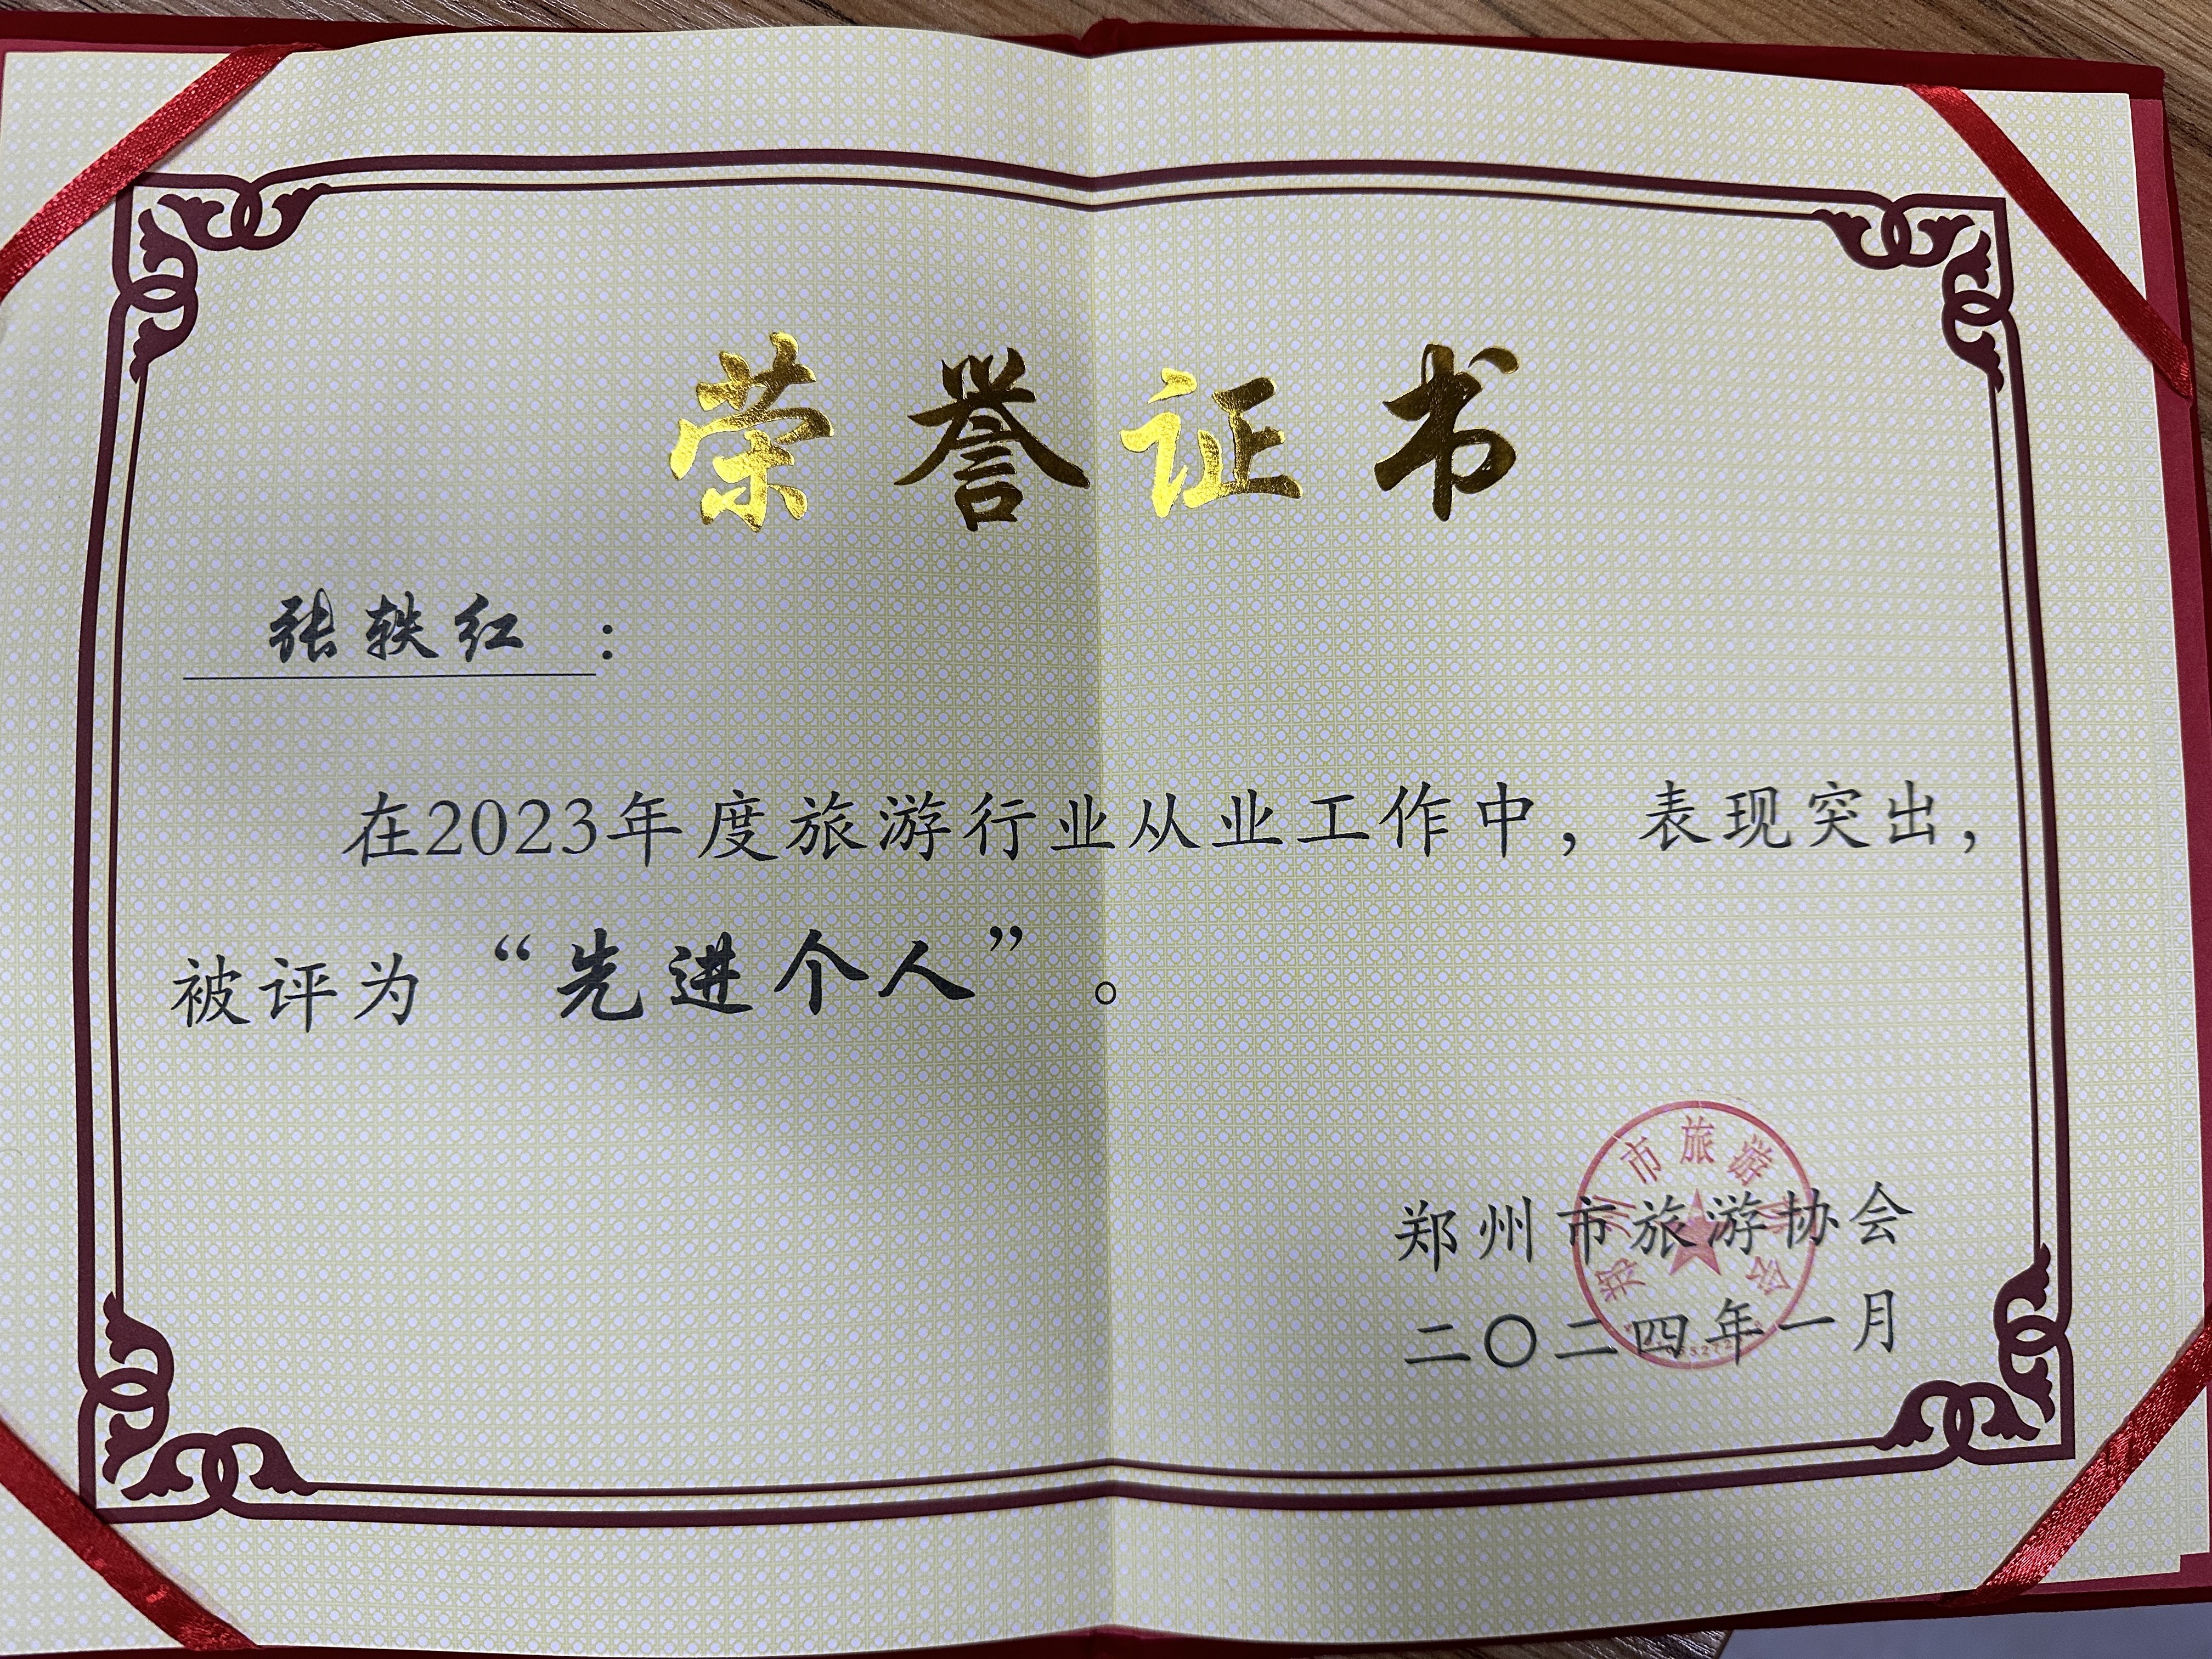 荣誉证书
张轶红：
在2023年度旅游行业从业工作中，表现突出，
被评为“先进个人”。
郑州市旅游协会
二〇二四年一月
郑州市旅游协会